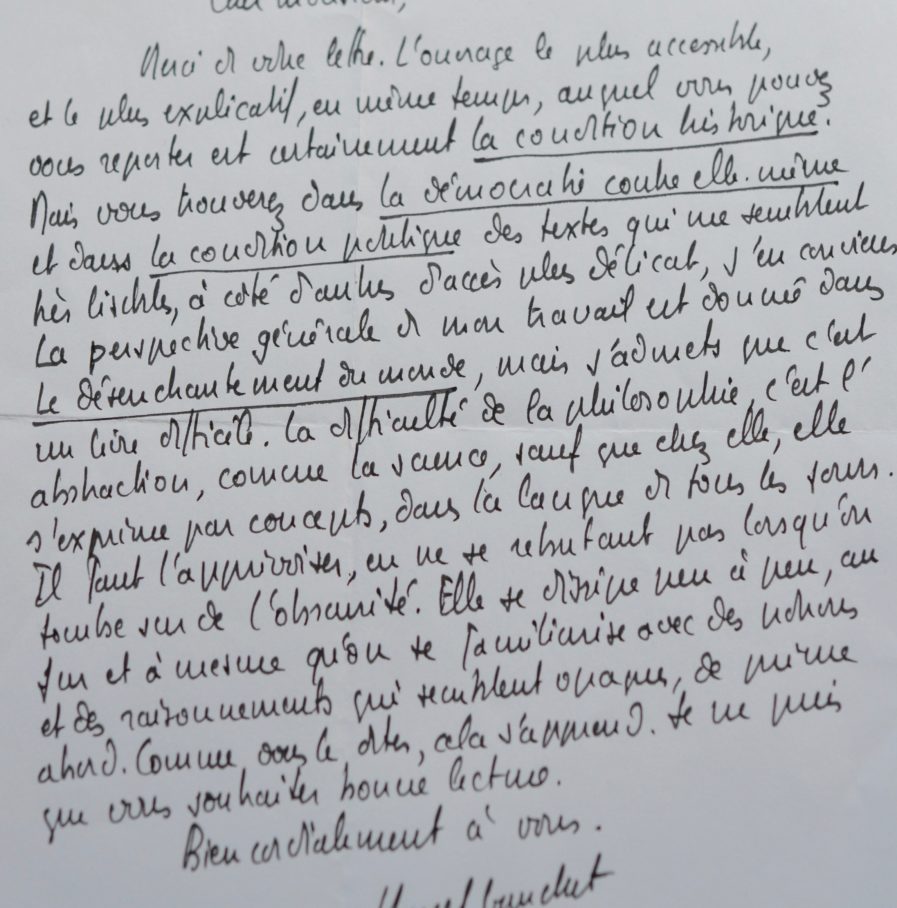 Merci de votre lettre. L'ouvrage le plus accessible,
et le plus explicatif, en même temps, auquel vous pouvez
vous reporter est certainement la condition historique.
Mais vous trouverez dans la démocratie contre elle-même
et dans la condition politique des textes qui me semblent
très lisibles, à côté d'autres d'accès plus délicat, j'en conviens
La perspective générale de mon travail est donnée dans
Le désenchantement du monde, mais j'admets que c'est
un livre difficile. La difficulté de la philosophie, c'est l'
abstraction, comme la science, sauf que chez elle, elle
s'exprime par concepts, dans la langue de tous les jours.
Il faut l'apprivoiser, en ne se rebutant pas lorsqu'on
tombe sur de l'obscurité. Elle se dissipe peu à peu, au
fur et à mesure qu'on se familiarise avec des notions
et des raisonnements qui semblent opaques, de prime
abord. Comme vous le dites, cela s'apprend. Je ne puis
que vous souhaiter bonne lecture.
Bien cordialement à vous.